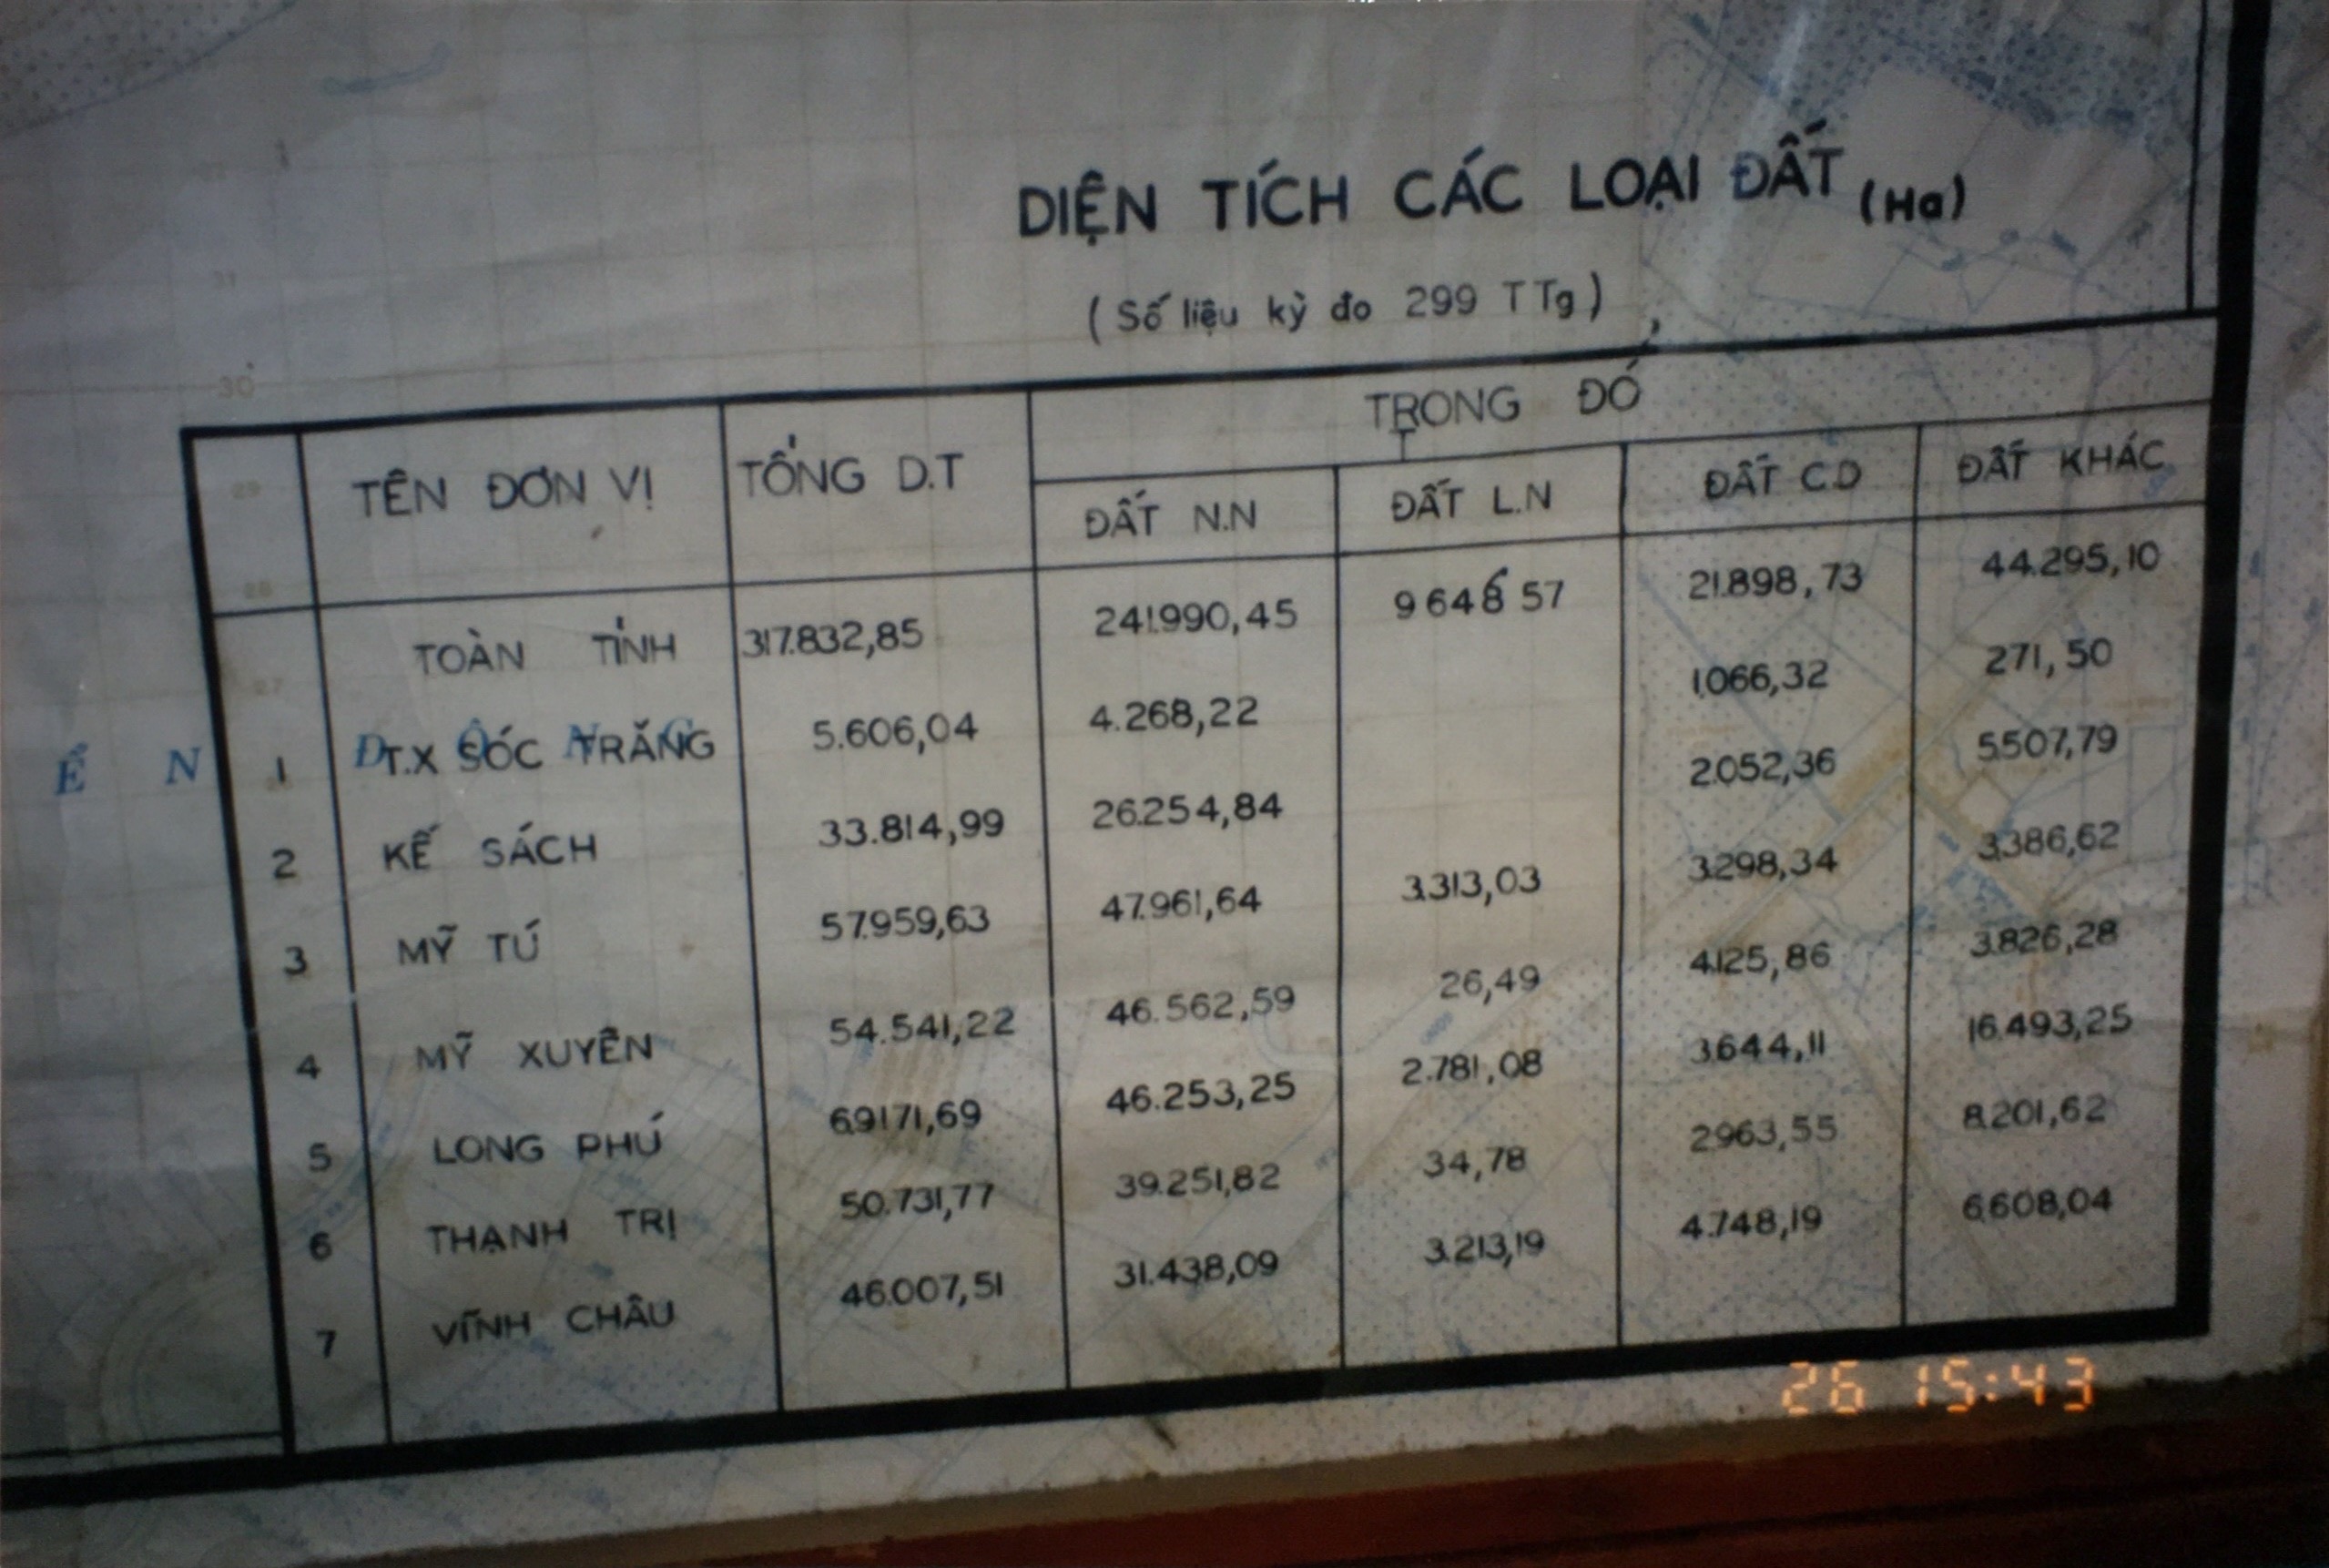 DIỆN TÍCH CÁC LOẠI ĐẤT (Ha)
(Số liệu kỳ đo 299 TTg)
TÊN ĐƠN VỊ TỔNG D.T TRONG ĐÓ
ĐẤT N.N ĐẤT L.N ĐẤT C.D ĐẤT KHÁC
TOÀN TỈNH 317.832,85 241.990,45 9648 57 21.898,73 44.295,10
1 T.X SÓC TRĂNG 5.606,04 4.268,22 1.066,32 271,50
2 KẾ SÁCH 33.814,99 26.254,84 2.052,36 5.507,79
3 MỸ TÚ 57.959,63 47.961,64 3.313,03 3.298,34 3.386,62
4 MỸ XUYÊN 54.541,22 46.562,59 26,49 4.125,86 3.826,28
5 LONG PHÚ 69.171,69 46.253,25 2.781,08 3.644,11 16.493,25
6 THẠNH TRỊ 50.731,77 39.251,82 34,78 2.963,55 8.201,62
7 VĨNH CHÂU 46.007,51 31.438,09 3.213,19 4.748,19 6.608,04
Ể N Đ Ô N G
31
30
29
28
27
26 15:43